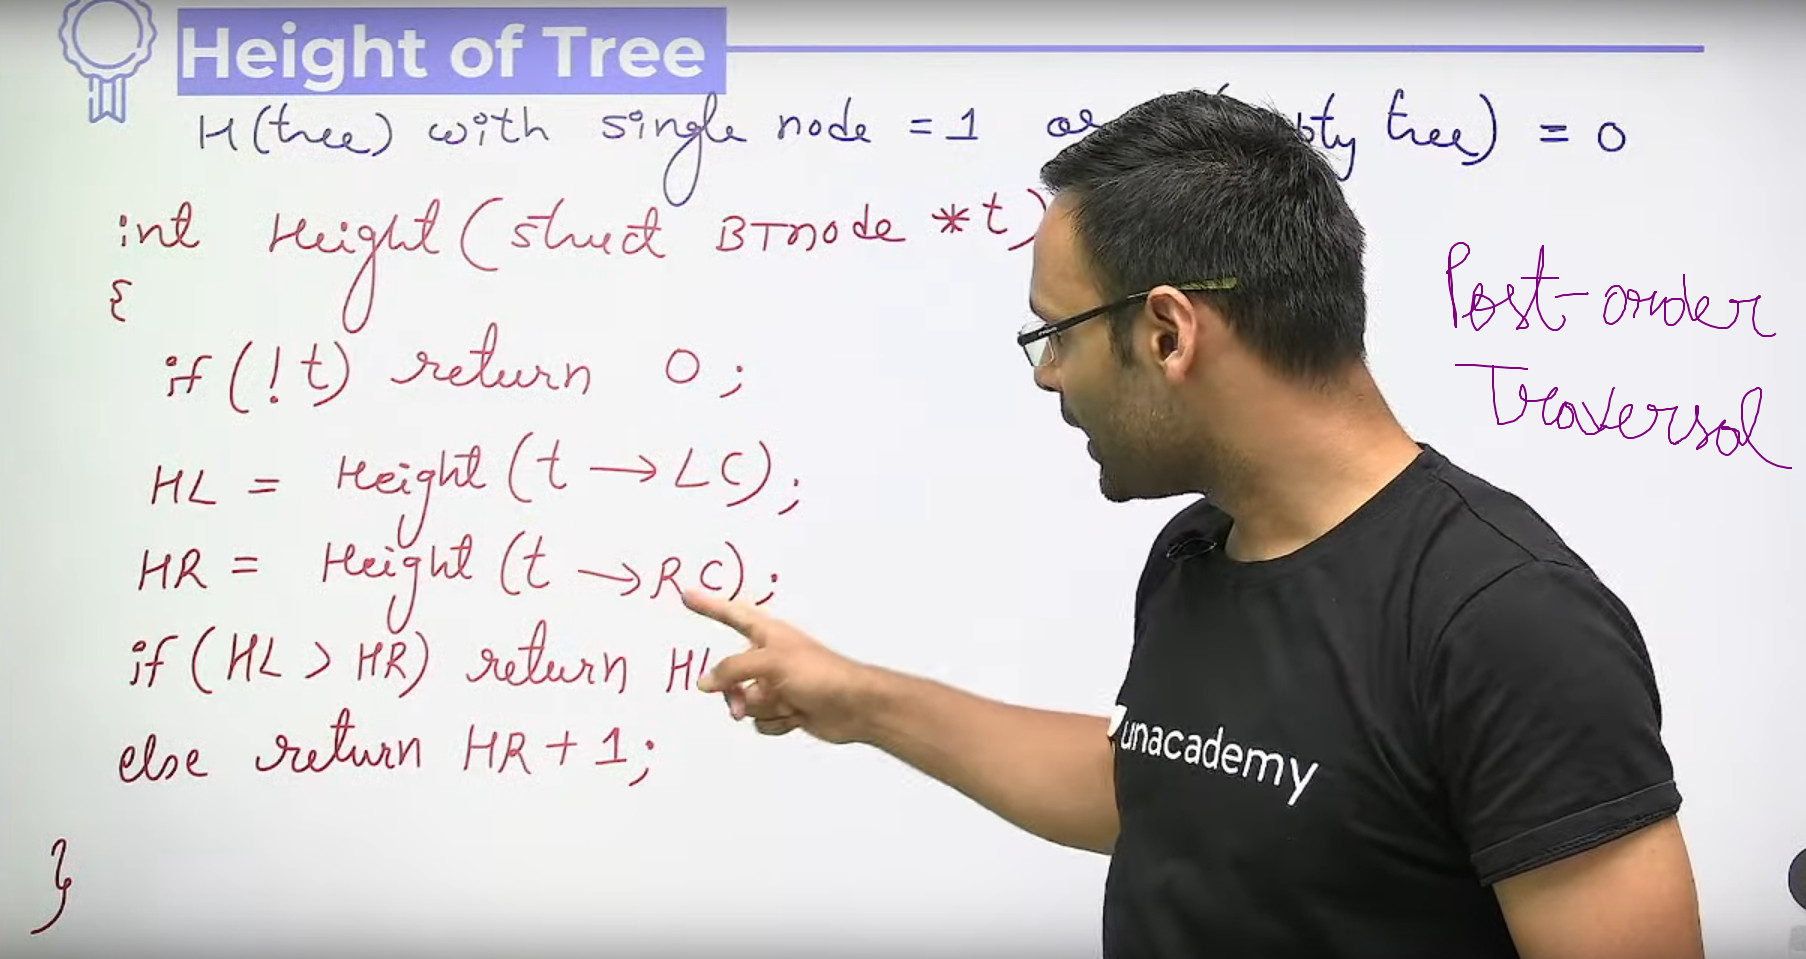 Height of Tree
H(tree) with single node = 1 or pty tree) = 0
int Height (struct BTnode *t)
{
if (!t) return 0;
HL = Height (t → LC);
HR = Height (t → RC);
if (HL > HR) return HL
else return HR + 1;
}
Post-order
Traversal
unacademy